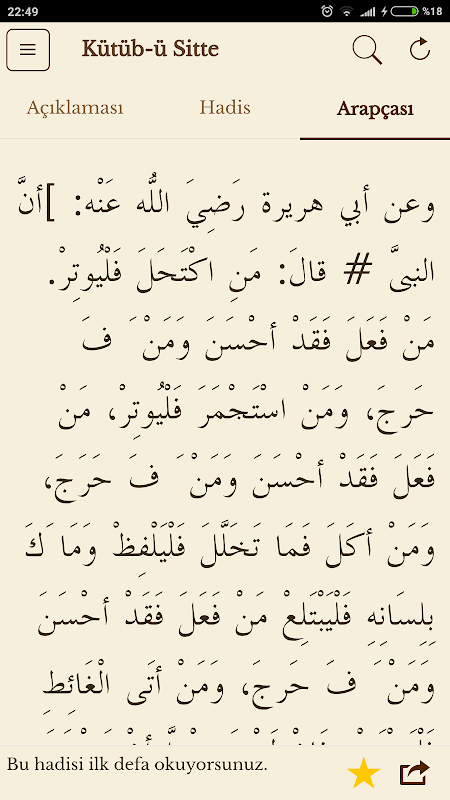 22:49
%18
Kütüb-ü Sitte
Açıklaması
Hadis
Arapçası
وعن أبي هريرة رَضِيَ اللَّه عَنْه: ]أنَّ
النبىَّ # قالَ: مَنِ اكْتَحَلَ فَلْيُوتِرْ.
مَنْ فَعَلَ فَقَدْ أحْسَنَ وَمَنْ َ فَ
حَرجَ، وَمَنْ اسْتَجْمَرَ فَلْيُوتِرْ، مَنْ
فَعَلَ فَقَدْ أحْسَنَ وَمَنْ َ فَ حَرَجَ،
وَمَنْ أكَلَ فَمَا تَخَلَّلَ فَلْيَلْفِظْ وَمَا َكَ
بِلِسَانِهِ فَلْيَبْتَلِعْ مَنْ فَعَلَ فَقَدْ أحْسَنَ
وَمَنْ َ فَ حَرجَ، وَمَنْ أتَى الْغَائِطِ
Bu hadisi ilk defa okuyorsunuz.